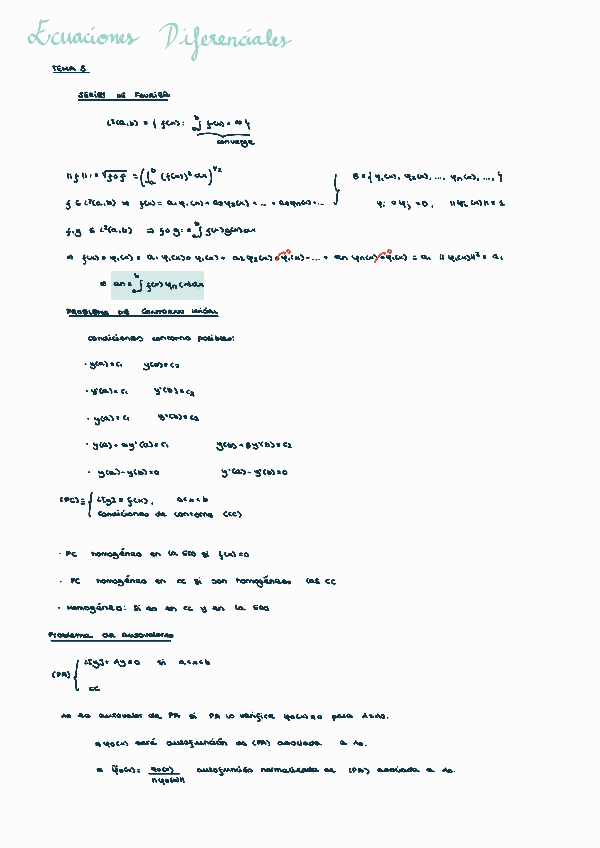 Ecuaciones Diferenciales
TEMA 5
SERIES DE FOURIER
L²(a,b) = { f(x) : ∫ₐᵇ f(x) < ∞ }
converge
||f|| = √(f∘f) = (∫ₐᵇ (f(x))² dx)^1/2
B = { φ₁(x), φ₂(x), ..., φₙ(x), ... }
f ∈ L²(a,b) ⇒ f(x) = a₁φ₁(x) + a₂φ₂(x) + ... + aₙφₙ(x) + ...
φᵢ ∘ φⱼ = 0, ||φₙ(x)|| = 1
f,g ∈ L²(a,b) ⇒ f∘g = ∫ₐᵇ f(x)g(x)dx
⇒ f(x)∘φ₁(x) = a₁ φ₁(x)∘φ₁(x) + a₂ φ₂(x)∘φ₁(x) + ... + aₙ φₙ(x)∘φ₁(x) = a₁ ||φ₁(x)||² = a₁
⇒ aₙ = ∫ₐᵇ f(x) φₙ(x)dx
PROBLEMA DE CONTORNO
Condiciones contorno posibles:
· y(a) = c₁ y(b) = c₂
· y'(a) = c₁ y'(b) = c₂
· y(a) = c₁ y'(b) = c₂
· y(a) + αy'(a) = c₁ y(b) + βy'(b) = c₂
· y(a) - y(b) = 0 y'(a) - y'(b) = 0
(PC) = { L[y] = f(x), a<x<b
condiciones de contorno (CC)
· PC homogéneo en la EDO si f(x) = 0
· PC homogéneo en CC si son homogéneas las CC
· Homogéneo: si es en CC y en la EDO
Problema de autovalores
(PA) { L[y] + λy = 0 si a<x<b
CC
λ₀ es autovalor de PA si PA lo verifica y₀(x) ≠ 0 para λ=λ₀.
⇒ y₀(x) será autofunción de (PA) asociada a λ₀.
⇒ φ₀(x) = y₀(x) / ||y₀(x)|| autofunción normalizada de (PA) asociada a λ₀.